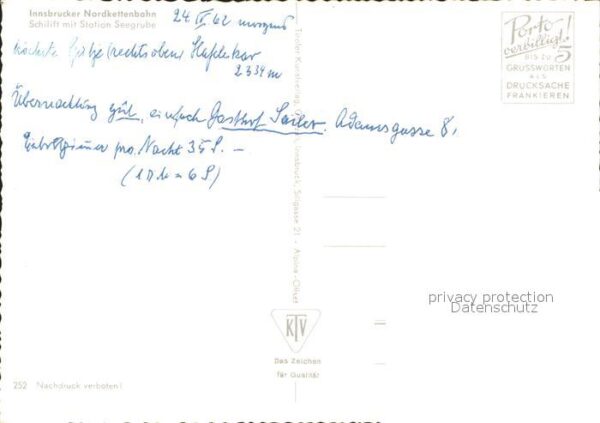 Innsbrucker Nordkettenbahn
Schilift mit Station Seegrube
24 IV 62 morgens
höchste Spitze (rechts oben) Hafelekar
2334 m
Übernachtung gut, einfach Gasthof Sailer, Adamgasse 8,
pro Nacht 35 S. —
(1 DM = 6 S)
Porto
verbilligt!
BIS ZU 5
GRUSSWORTEN
ALS
DRUCKSACHE
FRANKIEREN
Tiroler Kunstverlag, Innsbruck, Sillgasse 21 - Alpine-Offset
privacy protection
Datenschutz
KTV
Das Zeichen
für Qualität
252 Nachdruck verboten!